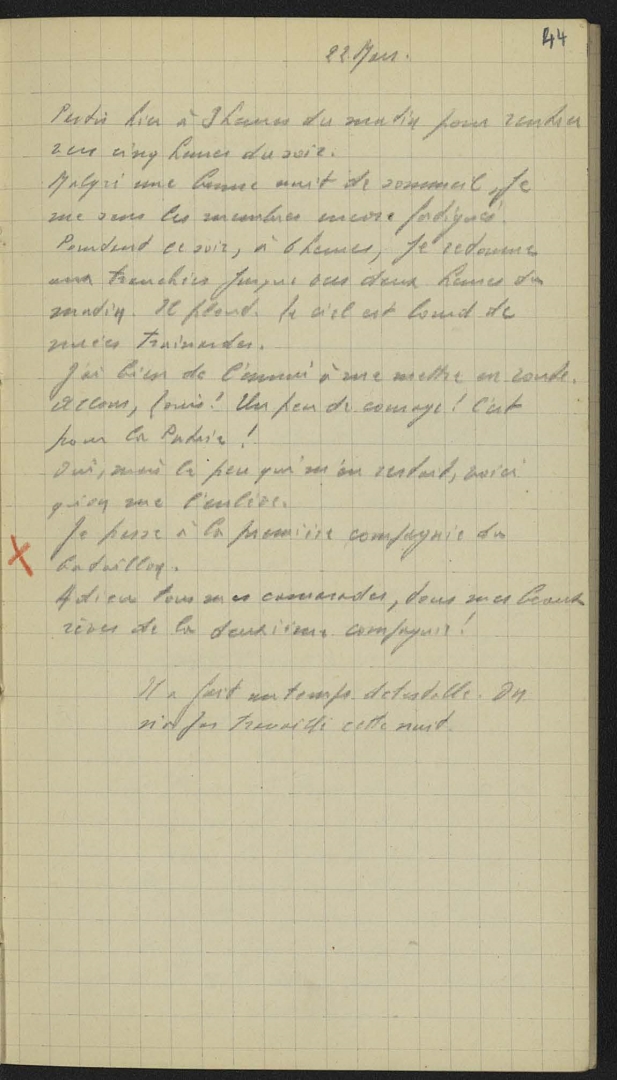 44
22 Mars.
Partis hier à 3 heures du matin pour rentrer
vers cinq heures du soir.
Malgré une bonne nuit de sommeil, je
me sens les membres encore fatigués.
Pourtant ce soir, à 6 heures, je retourne
aux tranchées jusque vers deux heures du
matin. Il pleut. Le ciel est lourd de
nuées trainardes.
J'ai bien de l'ennui à me mettre en route.
Allons, Louis! Un peu de courage! C'est
pour la Patrie!
Oui, mais le peu qui m'en restait, voici
qu'on me l'enlève.
Je passe à la première compagnie du
bataillon.
Adieu tous mes camarades, tous mes beaux
rêves de la deuxième compagnie!
Il a fait un temps detestable. On
n'a pas travaillé cette nuit.